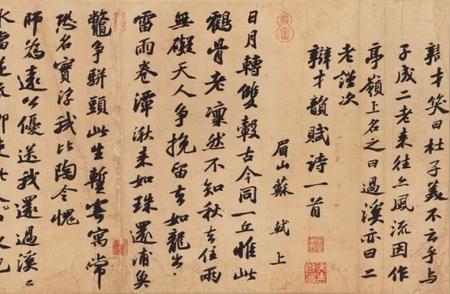 辯才笑曰杜子美不云乎與
子成二老来往亦風流因作
亭嶺上名之曰過溪亦曰二
老謹次
辯才韻賦詩一首
眉山蘇軾上
日月轉雙轂古今同一丘惟此
鶴骨老凜然不知秋去住兩
無礙天人争挽留去如龍出
雷雨卷潭湫来如珠還浦魚
鼈争駢頭此生暫寄寓常
恐名實浮我比陶令愧
師為遠公優送我還過溪溪
水當逆流